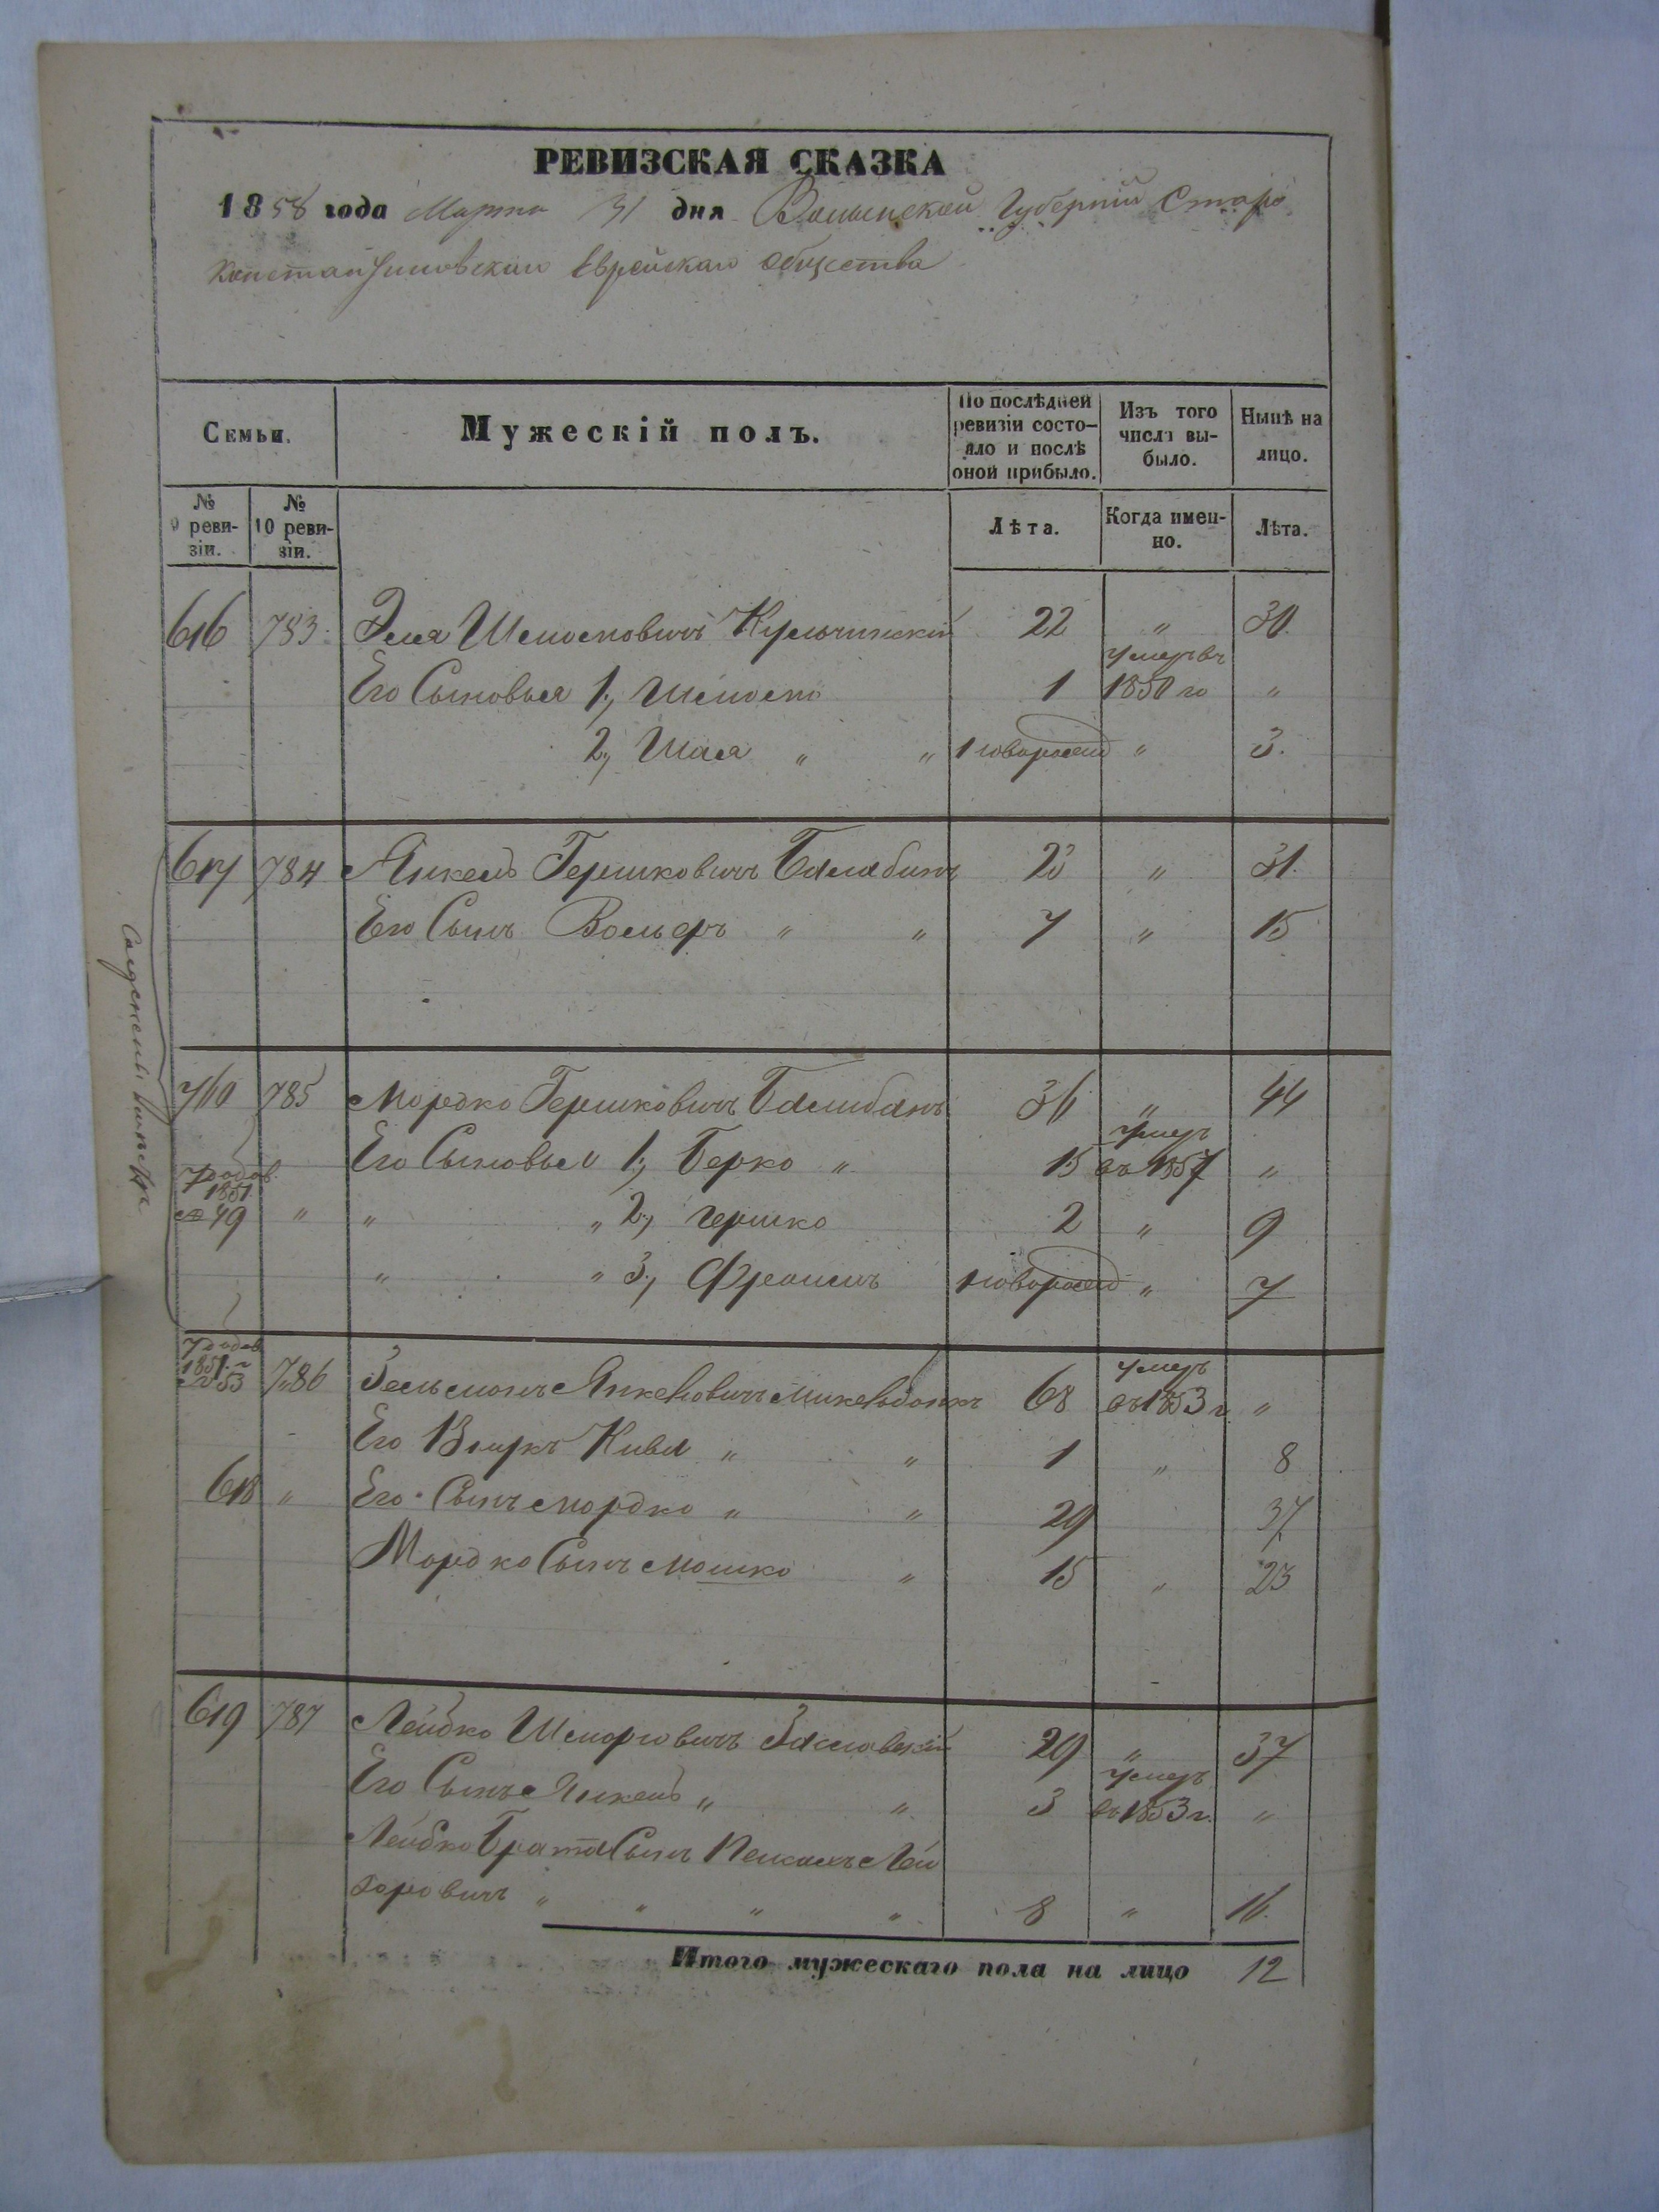 РЕВИЗСКАЯ СКАЗКА
1858 года Марта 31 дня Волынской Губерніи Старо
Константиновскаго Еврейскаго Общества
Семьи. Мужескій полъ. По послѣдней ревизіи состояло и послѣ оной прибыло. Изъ того числа выбыло. Нынѣ на лицо.
№ 9 ревизіи. № 10 ревизіи. Лѣта. Когда именно. Лѣта.
616 783. Эля Шмулевичъ Кульчинскій 22 " 30.
умеръ въ
Его Сыновья 1, 1 1850 го "
2, Шая " " новорожд " 3.
617 784 Янкель Гершковичъ Балабанъ 23 " 31.
Его Сынъ Вольфъ " " 7 " 15
760 785 Мордко Гершковичъ Балабанъ 36 " 44
умеръ
Его Сыновья 1, Берко " 15 въ 1857 "
1851
№ 49 " " " 2, Гершко 2 " 9
" " 3, новорожд " 7
1851 г умеръ
№ 53 786 Зельманъ Янкелевичъ 68 въ 1853 г. "
Его Внукъ Кива " " 1 " 8
618 " Его Сынъ Мордко " " 29 37
Мордко Сынъ Мошко " 15 " 23
619 787 Лейбко Заславскій 29 " 37
умеръ
Его Сынъ Янкель " " 3 въ 1853 г. "
Лейбко Брата Сынъ Лей
зоровичъ " " " " 8 " 16.
Итого мужескаго пола на лицо 12